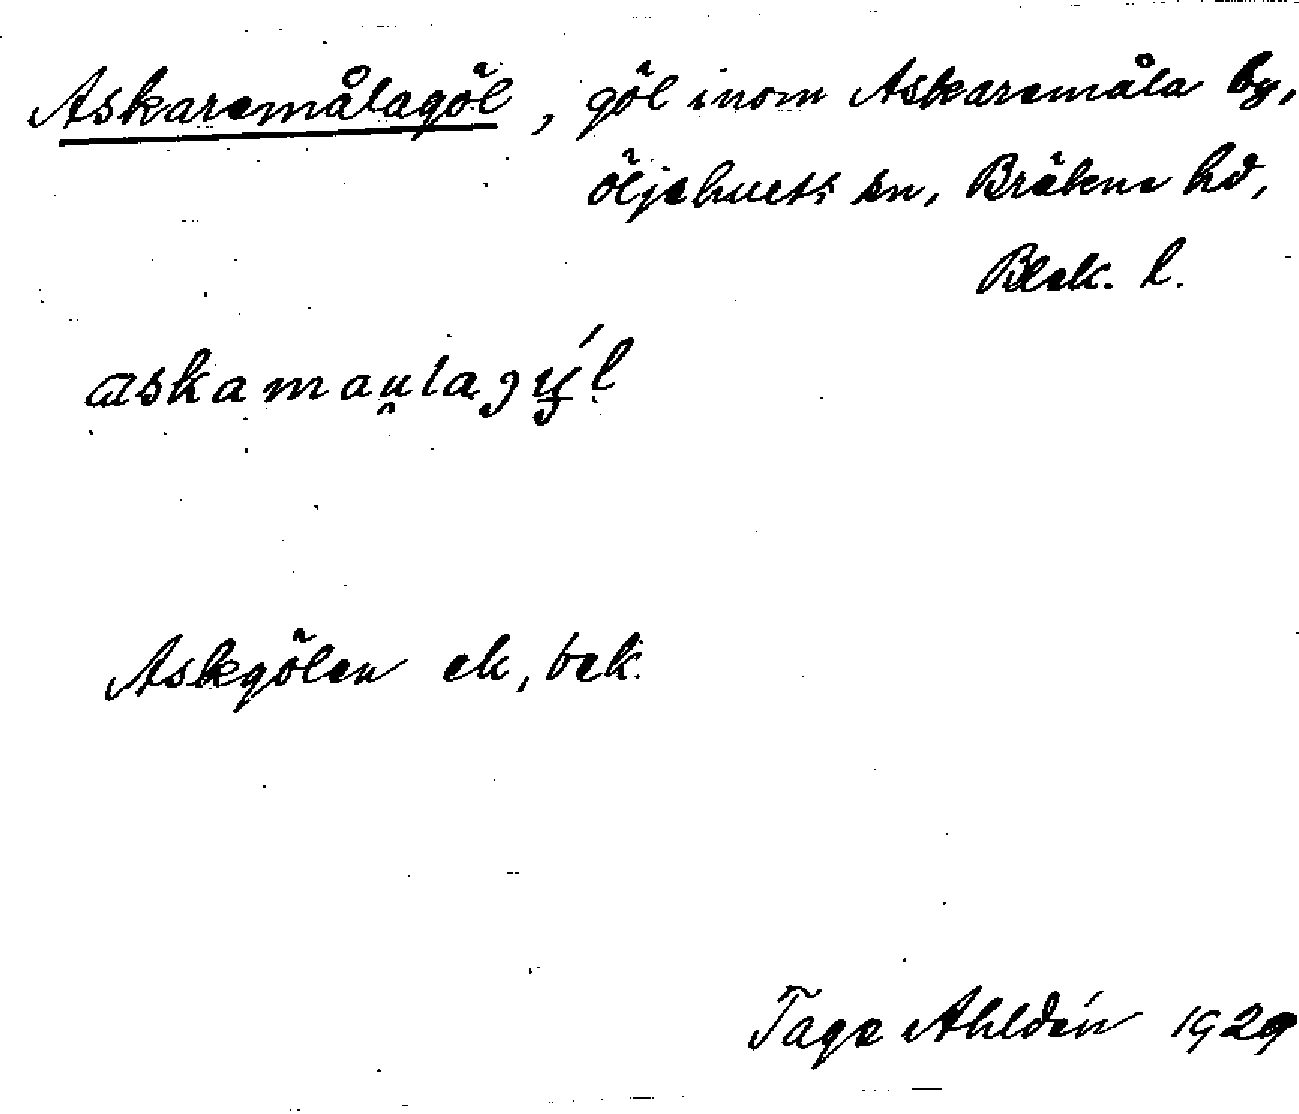 Askaremålagöl, göl inom Askaremåla by,
Öljehults sn, Bräkne hd,
Blek. l.
askamau̯lagy´l
Askgölen ek, bek.
Tage Ahldén 1929